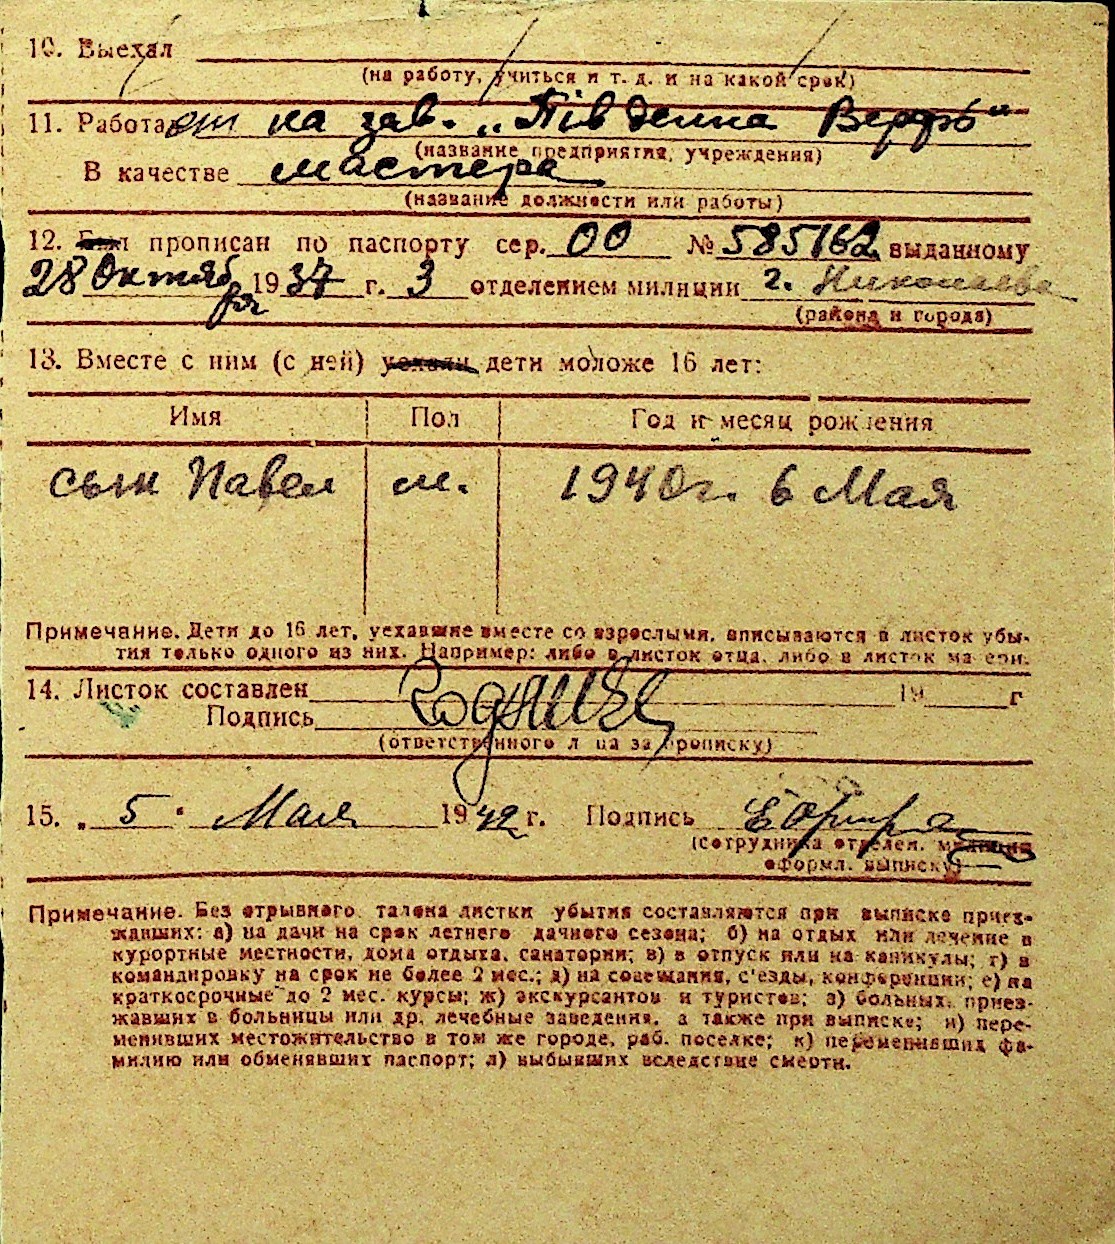 10. Выехал
(на работу, учиться и т. д. и на какой срок)
11. Работает на зав. „Південна Верфь"
(название предприятия, учреждения)
В качестве мастера
(название должности или работы)
12. Был прописан по паспорту сер. 00 № 585162 выданному
28 Октября 1937 г. 3 отделением милиции г. Николаева
(района и города)
13. Вместе с ним (с ней) уехали дети моложе 16 лет:
Имя Пол Год и месяц рождения
сын Павел м. 1940 г. 6 Мая
Примечание. Дети до 16 лет, уехавшие вместе со взрослыми, вписываются в листок убы-
тия только одного из них. Например: либо в листок отца, либо в листок матери.
14. Листок составлен 19 г
Подпись
(ответственного лица за прописку)
15. „ 5 " Мая 1942 г. Подпись
(сотрудника отделен. милиции
оформл. выписку)
Примечание. Без отрывного талона листки убытия составляются при выписке приез-
жавших: а) на дачи на срок летнего дачного сезона; б) на отдых или лечение в
курортные местности, дома отдыха, санатории; в) в отпуск или на каникулы; г) в
командировку на срок не более 2 мес.; д) на совещания, с'езды, конференции; е) на
краткосрочные до 2 мес. курсы; ж) экскурсантов и туристов; з) больных, приез-
жавших в больницы или др. лечебные заведения, а также при выписке; и) пере-
менивших местожительство в том же городе, раб. поселке; к) переменивших фа-
милию или обменявших паспорт; л) выбывших вследствие смерти.